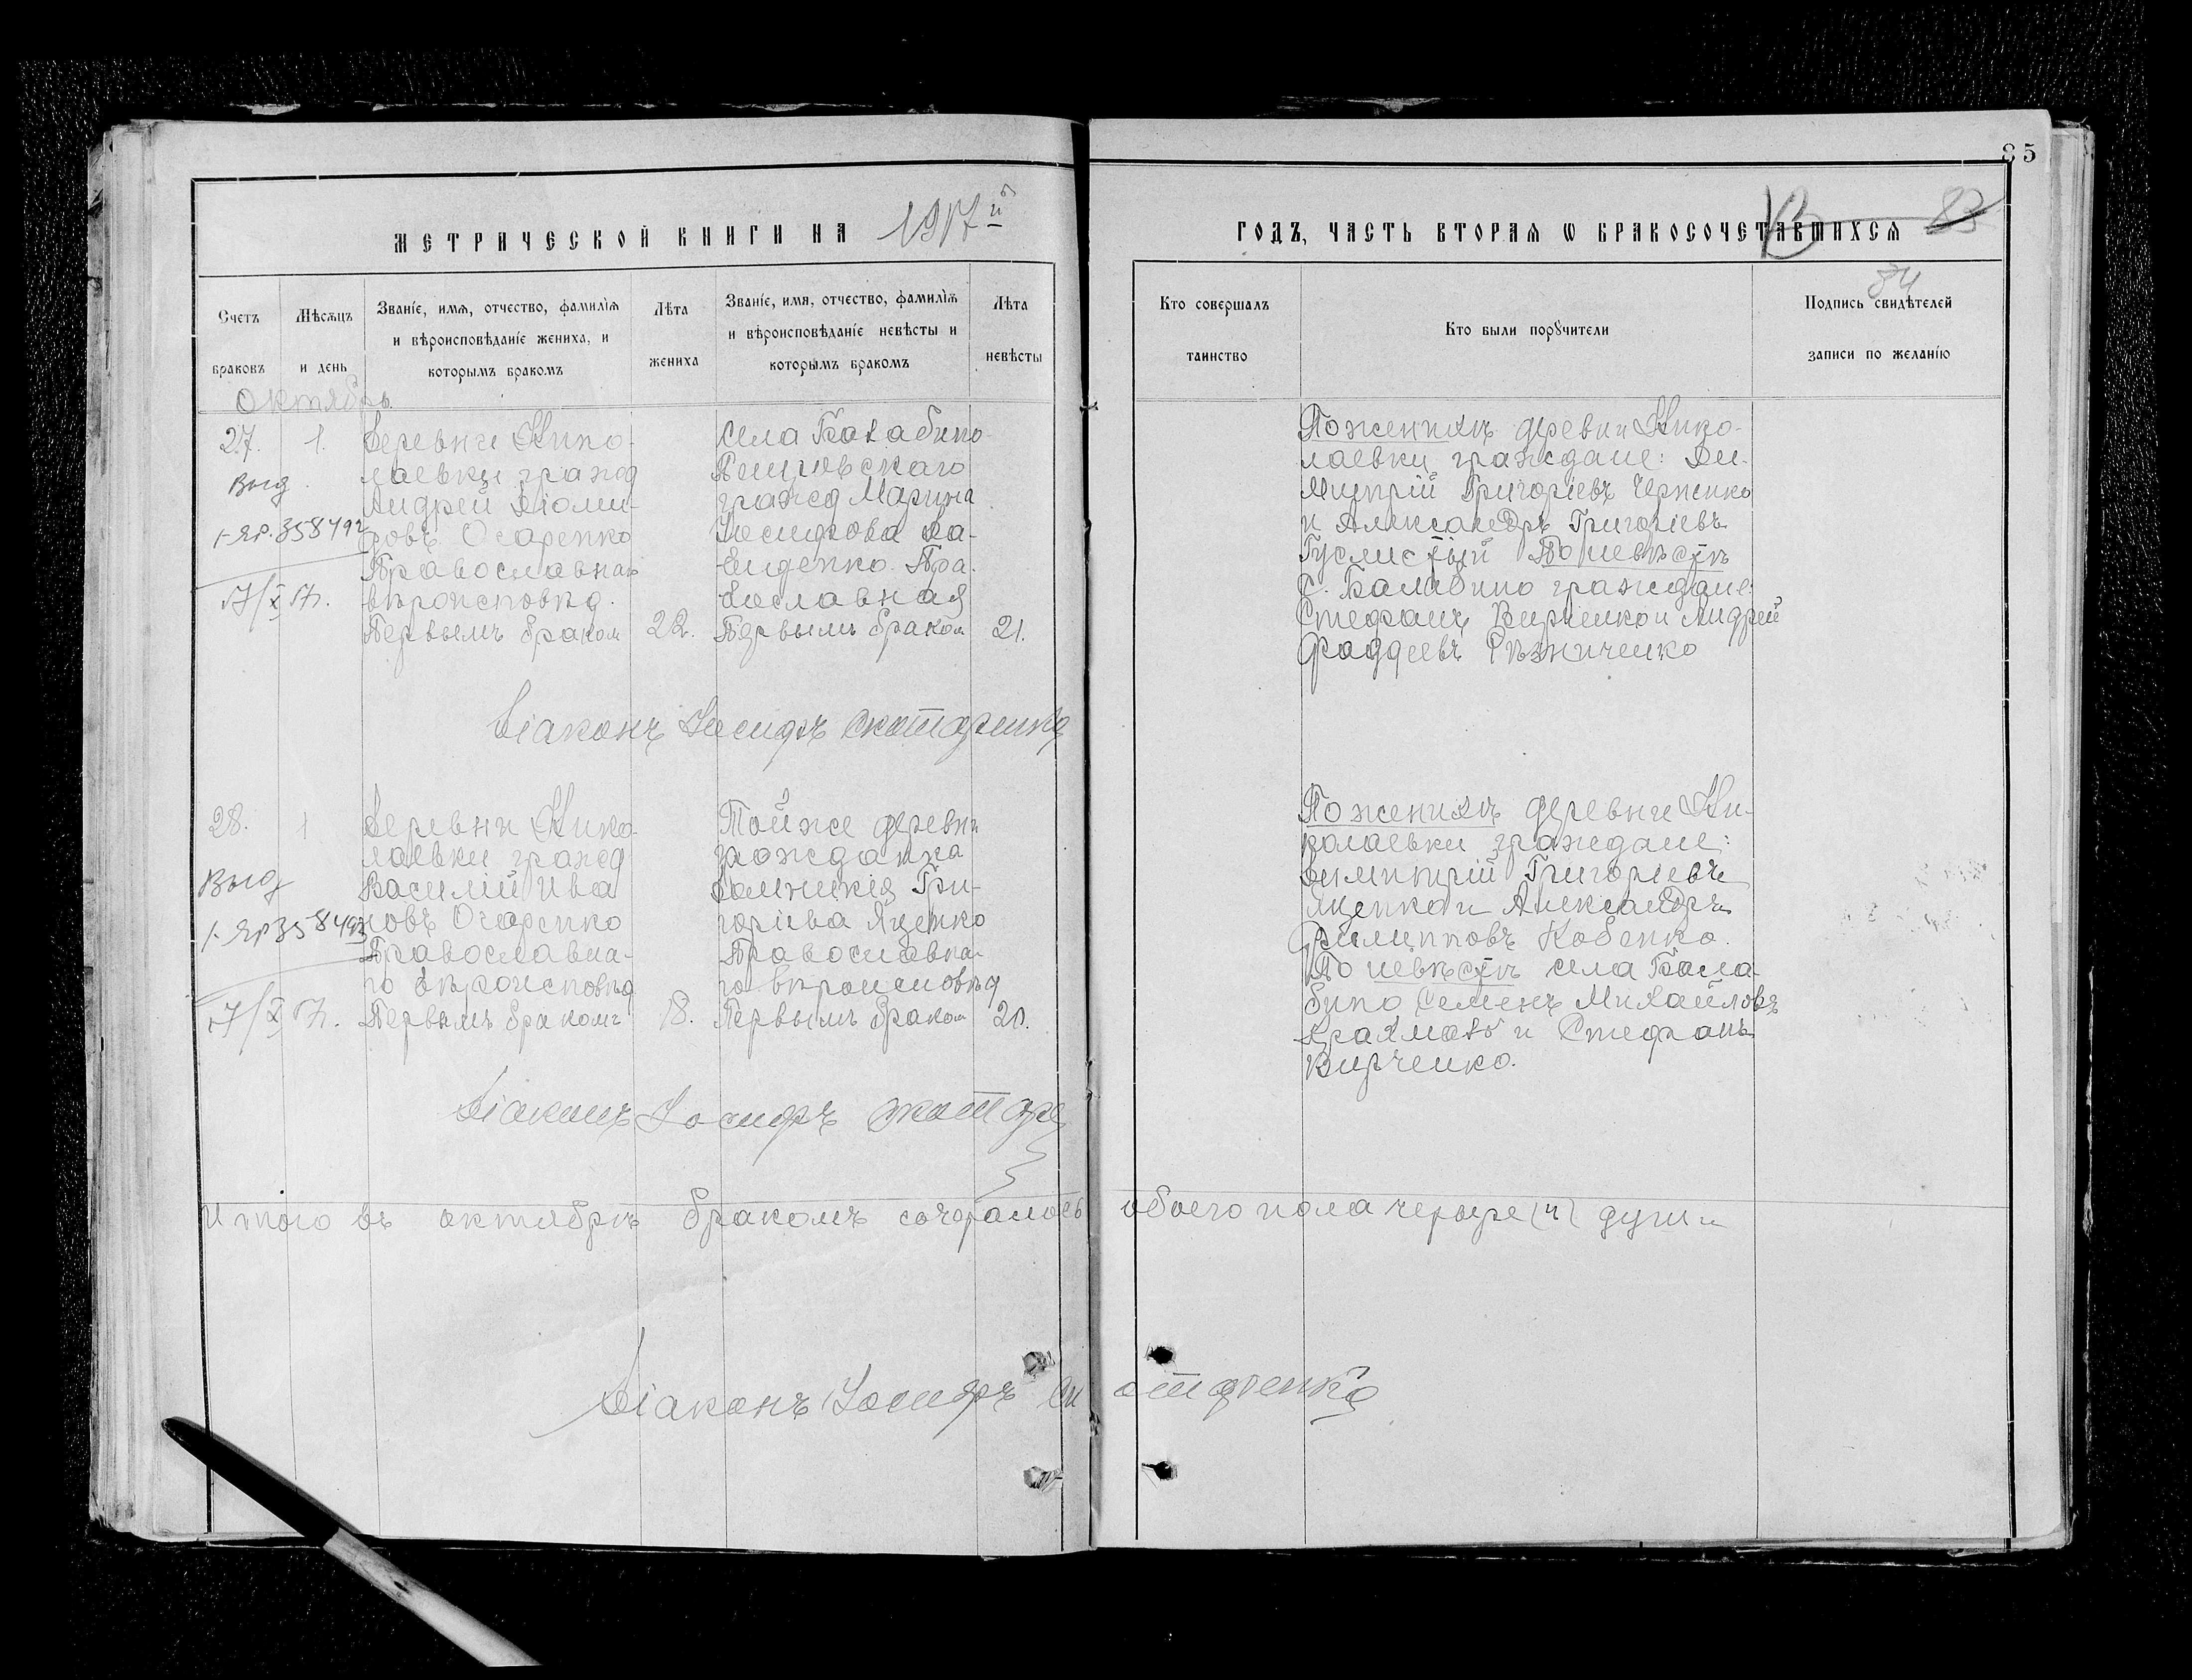 85
МЕТРИЧЕСКОЙ КНИГИ НА 1917й
ГОДЪ, ЧАСТЬ ВТОРАЯ Ѡ БРАКОСОЧЕТАВШИХСЯ
83
84
Счетъ браковъ
Мѣсяцъ и день
Званіе, имя, отчество, фамилія
и вѣроисповѣданіе жениха, и
которымъ бракомъ
Лѣта жениха
Званіе, имя, отчество, фамилія
и вѣроисповѣданіе невѣсты и
которымъ бракомъ
Лѣта невѣсты
Кто совершалъ таинство
Кто были поручители
Подпись свидѣтелей
записи по желанію
Октябрь
27. 1.
Выд.
1-ЯР. 358492
17/X 17.
Деревни Нико-
лаевки гражд
Андрей
ровъ
Православнаго
вѣроисповѣд.
Первымъ бракомъ
22.
Села Балабино-
гражд Марина
Іосифова Да-
виденко. Пра-
вославная
Первымъ бракомъ
21.
По женихѣ деревни Нико-
лаевки граждане: Ди-
митрій Григоріевъ Черненко
и Александръ Григоріевъ
Гуслистый По невѣстѣ
с. Балабино граждане:
Стефанъ Вирченко и Андрей
Фаддеевъ Рѣзниченко
Діаконъ Іосифъ Скотаренко
28. 1
Выд
1-ЯР 358493
17/X 17.
Деревни Нико-
лаевки гражд
Василій Ива
новъ
Православна-
го вѣроисповѣд
Первымъ бракомъ
18.
Тойже деревни
гражданка
Домникія Гри-
горіева Яценко
Православна-
го вѣроисповѣд
Первымъ бракомъ
20.
По женихѣ деревни Ни-
колаевки граждане:
Димитрій Григоріевъ
Яценко и Александръ
Филипповъ Кобенко.
По невѣстѣ села Бала-
бино Семенъ Михайловъ
и Стефанъ
Вирченко.
Діаконъ Іосифъ Скотаре
Итого въ октябрѣ бракомъ сочеталось обоего пола четыре (4) души
Діаконъ Іосифъ Скотаренко